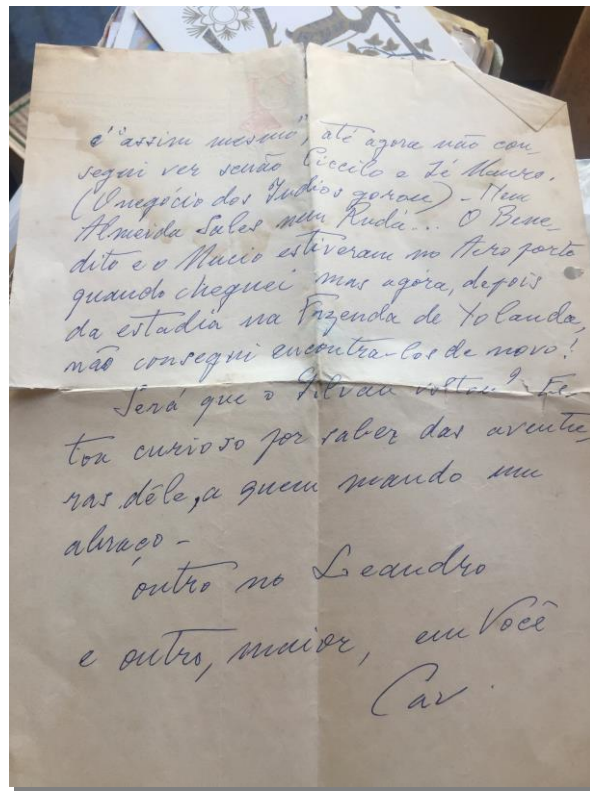 é "assim mesmo", até agora não con-
segui ver senão Ciccilo e Zé Mauro.
(O negócio dos Indios gorou) - Nem
Almeida Sales nem Rudá... O Bene-
dito e o Mucio estiveram no Aeroporto
quando cheguei mas agora, depois
da estadia na Fazenda de Yolanda,
não consegui encontra-los de novo!
Será que o Silvan voltou? Es-
tou curioso por saber das aventu-
ras dêle, a quem mando um
abraço -
outro no Leandro
e outro, maior, em Você
Cav.